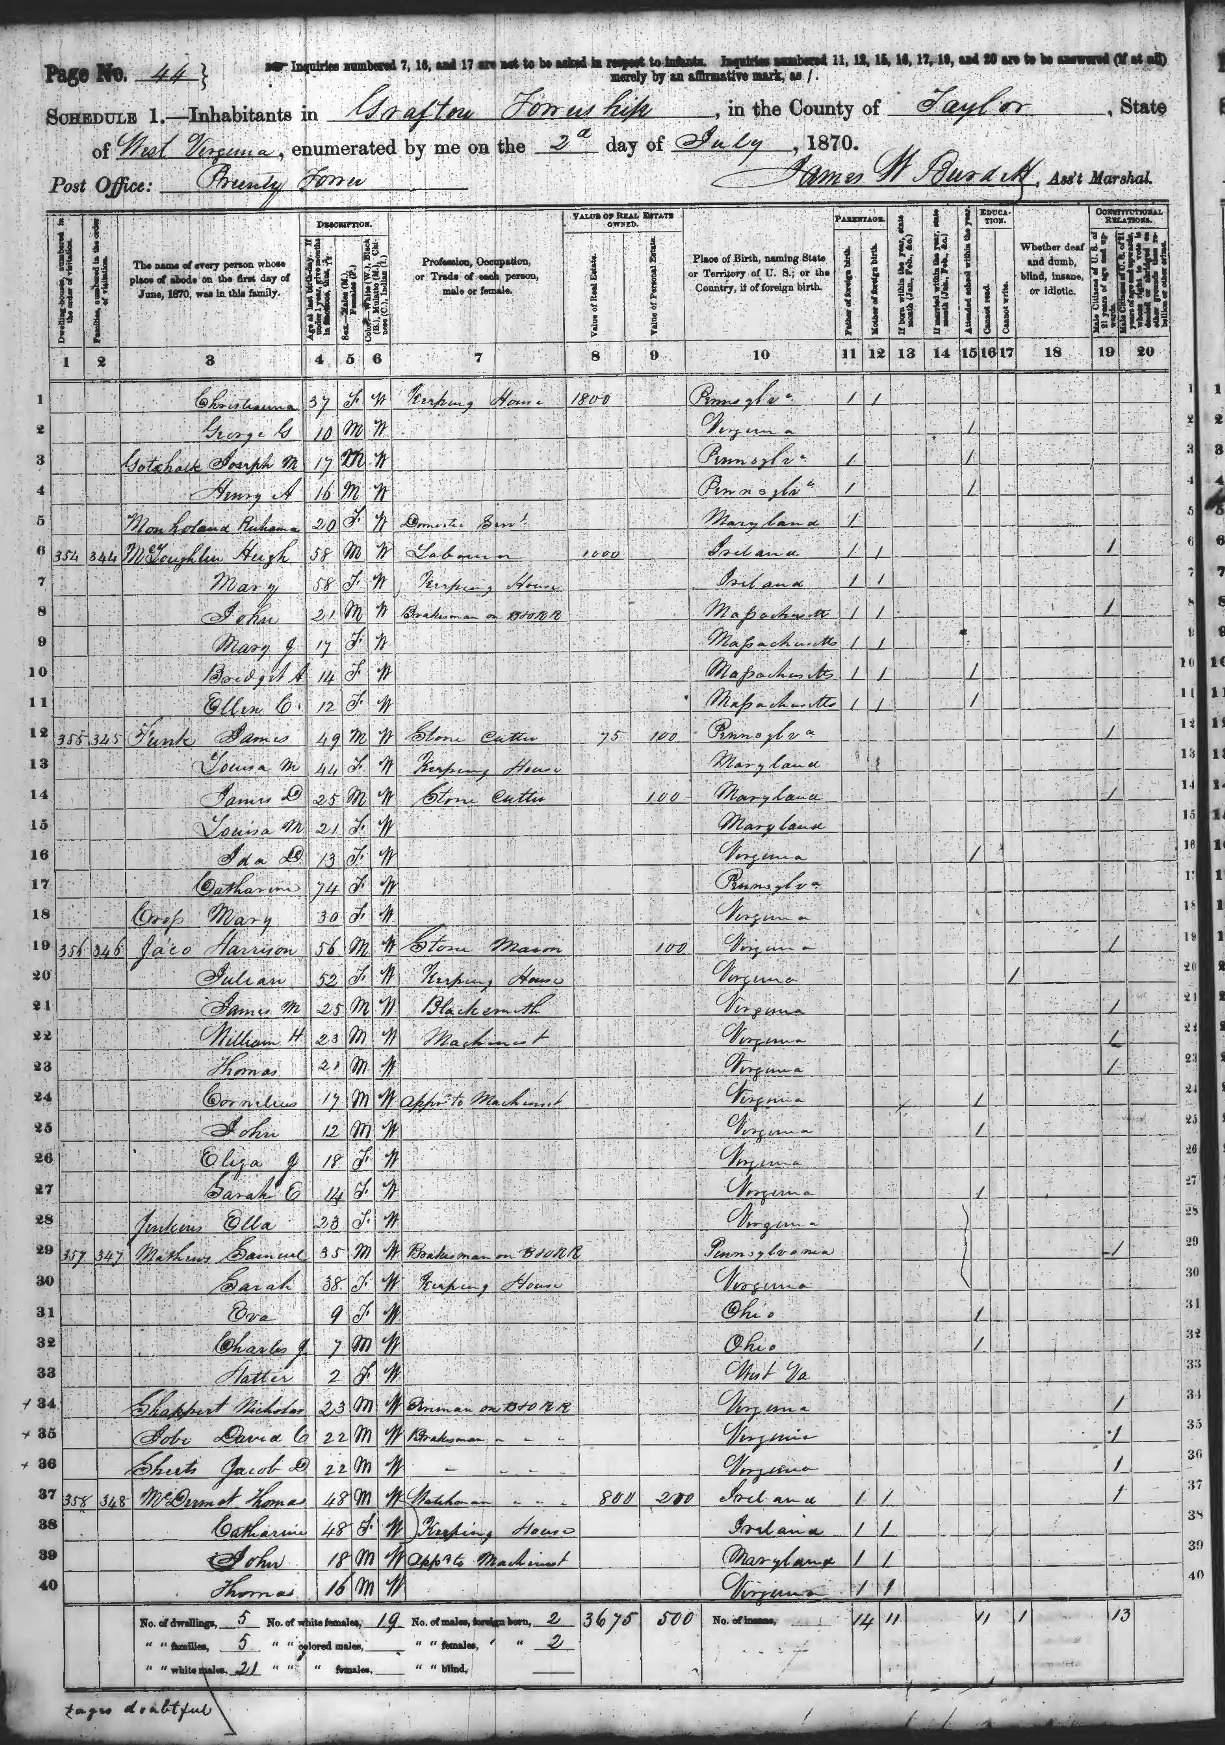 Page No. 44 } Inquiries numbered 7, 16, and 17 are not to be asked in respect to infants. Inquiries numbered 11, 12, 15, 16, 17, 19, and 20 are to be answered (if at all)
merely by an affirmative mark, as /.
SCHEDULE 1.—Inhabitants in Grafton Township, in the County of Taylor, State
of West Virginia, enumerated by me on the 2d day of July, 1870.
Post Office: Pruntytown James W Burdett, Ass't Marshal.
DESCRIPTION. VALUE OF REAL ESTATE OWNED. PARENTAGE. EDUCATION. CONSTITUTIONAL RELATIONS.
Dwelling-houses, numbered in the order of visitation.
Families, numbered in the order of visitation.
The name of every person whose place of abode on the first day of June, 1870, was in this family.
Age at last birth-day. If under 1 year, give months in fractions, thus,
Sex.—Males (M.), Females (F.)
Color.—White (W.), Black (B.), Mulatto (M.), Chinese (C.), Indian (I.)
Profession, Occupation, or Trade of each person, male or female.
Value of Real Estate.
Value of Personal Estate.
Place of Birth, naming State or Territory of U. S.; or the Country, if of foreign birth.
Father of foreign birth.
Mother of foreign birth.
If born within the year, state month (Jan., Feb., &c.)
If married within the year, state month (Jan., Feb., &c.)
Attended school within the year.
Cannot read.
Cannot write.
Whether deaf and dumb, blind, insane, or idiotic.
Male Citizens of U. S. of 21 years of age and upwards.
Male Citizens of U. S. of 21 years of age and upwards, whose right to vote is denied or abridged on other grounds than rebellion or other crime.
1 2 3 4 5 6 7 8 9 10 11 12 13 14 15 16 17 18 19 20
1 Christianna 37 F W Keeping House 1800 Pennsylva 1 1 1
2 George G 10 M W Virginia 1 2
3 Gotshalk Joseph M 17 M W Pennsylva 1 1 3
4 Henry A 16 M W Pennsylva 1 1 4
5 Monholand Ruhama 20 F W Domestic Servt Maryland 1 5
6 354 344 McLoughlin Hugh 58 M W Laborer 1000 Ireland 1 1 1 6
7 Mary 58 F W Keeping House Ireland 1 1 7
8 John 21 M W Brakesman on B&O RR Massachusetts 1 1 1 8
9 Mary J 17 F W Massachusetts 1 1 9
10 Bridget A 14 F W Massachusetts 1 1 1 10
11 Ellen C. 12 F W Massachusetts 1 1 1 11
12 355 345 Funk James 49 M W Stone Cutter 75 100 Pennsylva 1 12
13 Louisa M 44 F W Keeping House Maryland 13
14 James D 25 M W Stone Cutter 100 Maryland 1 14
15 Louisa M 21 F W Maryland 15
16 Ida D 13 F W Virginia 1 16
17 Catharine 74 F W Pennsylva 17
18 Cross Mary 30 F W Virginia 18
19 356 346 Jaco Harrison 56 M W Stone Mason 100 Virginia 1 19
20 Julian 52 F W Keeping House Virginia 1 20
21 James M 25 M W Blacksmith Virginia 1 21
22 William H 23 M W Machinest Virginia 1 22
23 Thomas 21 M W Virginia 1 23
24 Cornelius 17 M W App. to Machinest Virginia 1 24
25 John 12 M W Virginia 1 25
26 Eliza J 18 F W Virginia 26
27 Sarah E 14 F W Virginia 1 27
28 Jenkins Ella 23 F W Virginia 28
29 357 347 Mathews Samuel 35 M W Brakesman on B&O RR Pennsylvania 1 29
30 Sarah 38 F W Keeping House Virginia 30
31 Eva 9 F W Ohio 1 31
32 Charles J 7 M W Ohio 1 32
33 Hatter 2 F W West Va 33
+ 34 Shappert Nicholas 23 M W Fireman on B&O RR Virginia 1 34
+ 35 Jobe David C 22 M W Brakesman " " " Virginia 1 35
+ 36 Sherts Jacob D 22 M W " " " " Virginia 1 36
37 358 348 McDermot Thomas 48 M W Watchman " " " 800 200 Ireland 1 1 1 37
38 Catharine 48 F W Keeping House Ireland 1 1 38
39 John 18 M W App. to Machinest Maryland 1 1 39
40 Thomas 16 M W Virginia 1 1 40
No. of dwellings, 5 No. of white females, 19 No. of males, foreign born, 2 3675 500 No. of insane, 14 11 11 1 13
" " families, 5 " " colored males, " " females, " " 2
" " white males, 21 " " " females, " " blind,
+ages doubtful